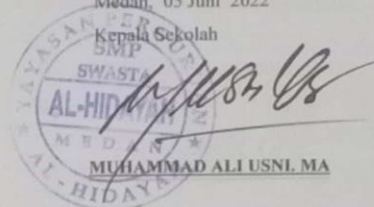 Medan, 05 Juni 2022
Kepala Sekolah
YAYASAN PERGURUAN
SMP
SWASTA
AL-HIDAYAH
MEDAN
AL-HIDAYAH
MUHAMMAD ALI USNI. MA